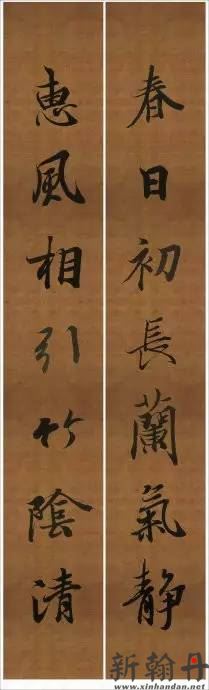 春日初長蘭氣靜
惠風相引竹陰清
新翰丹
www.xinhandan.net